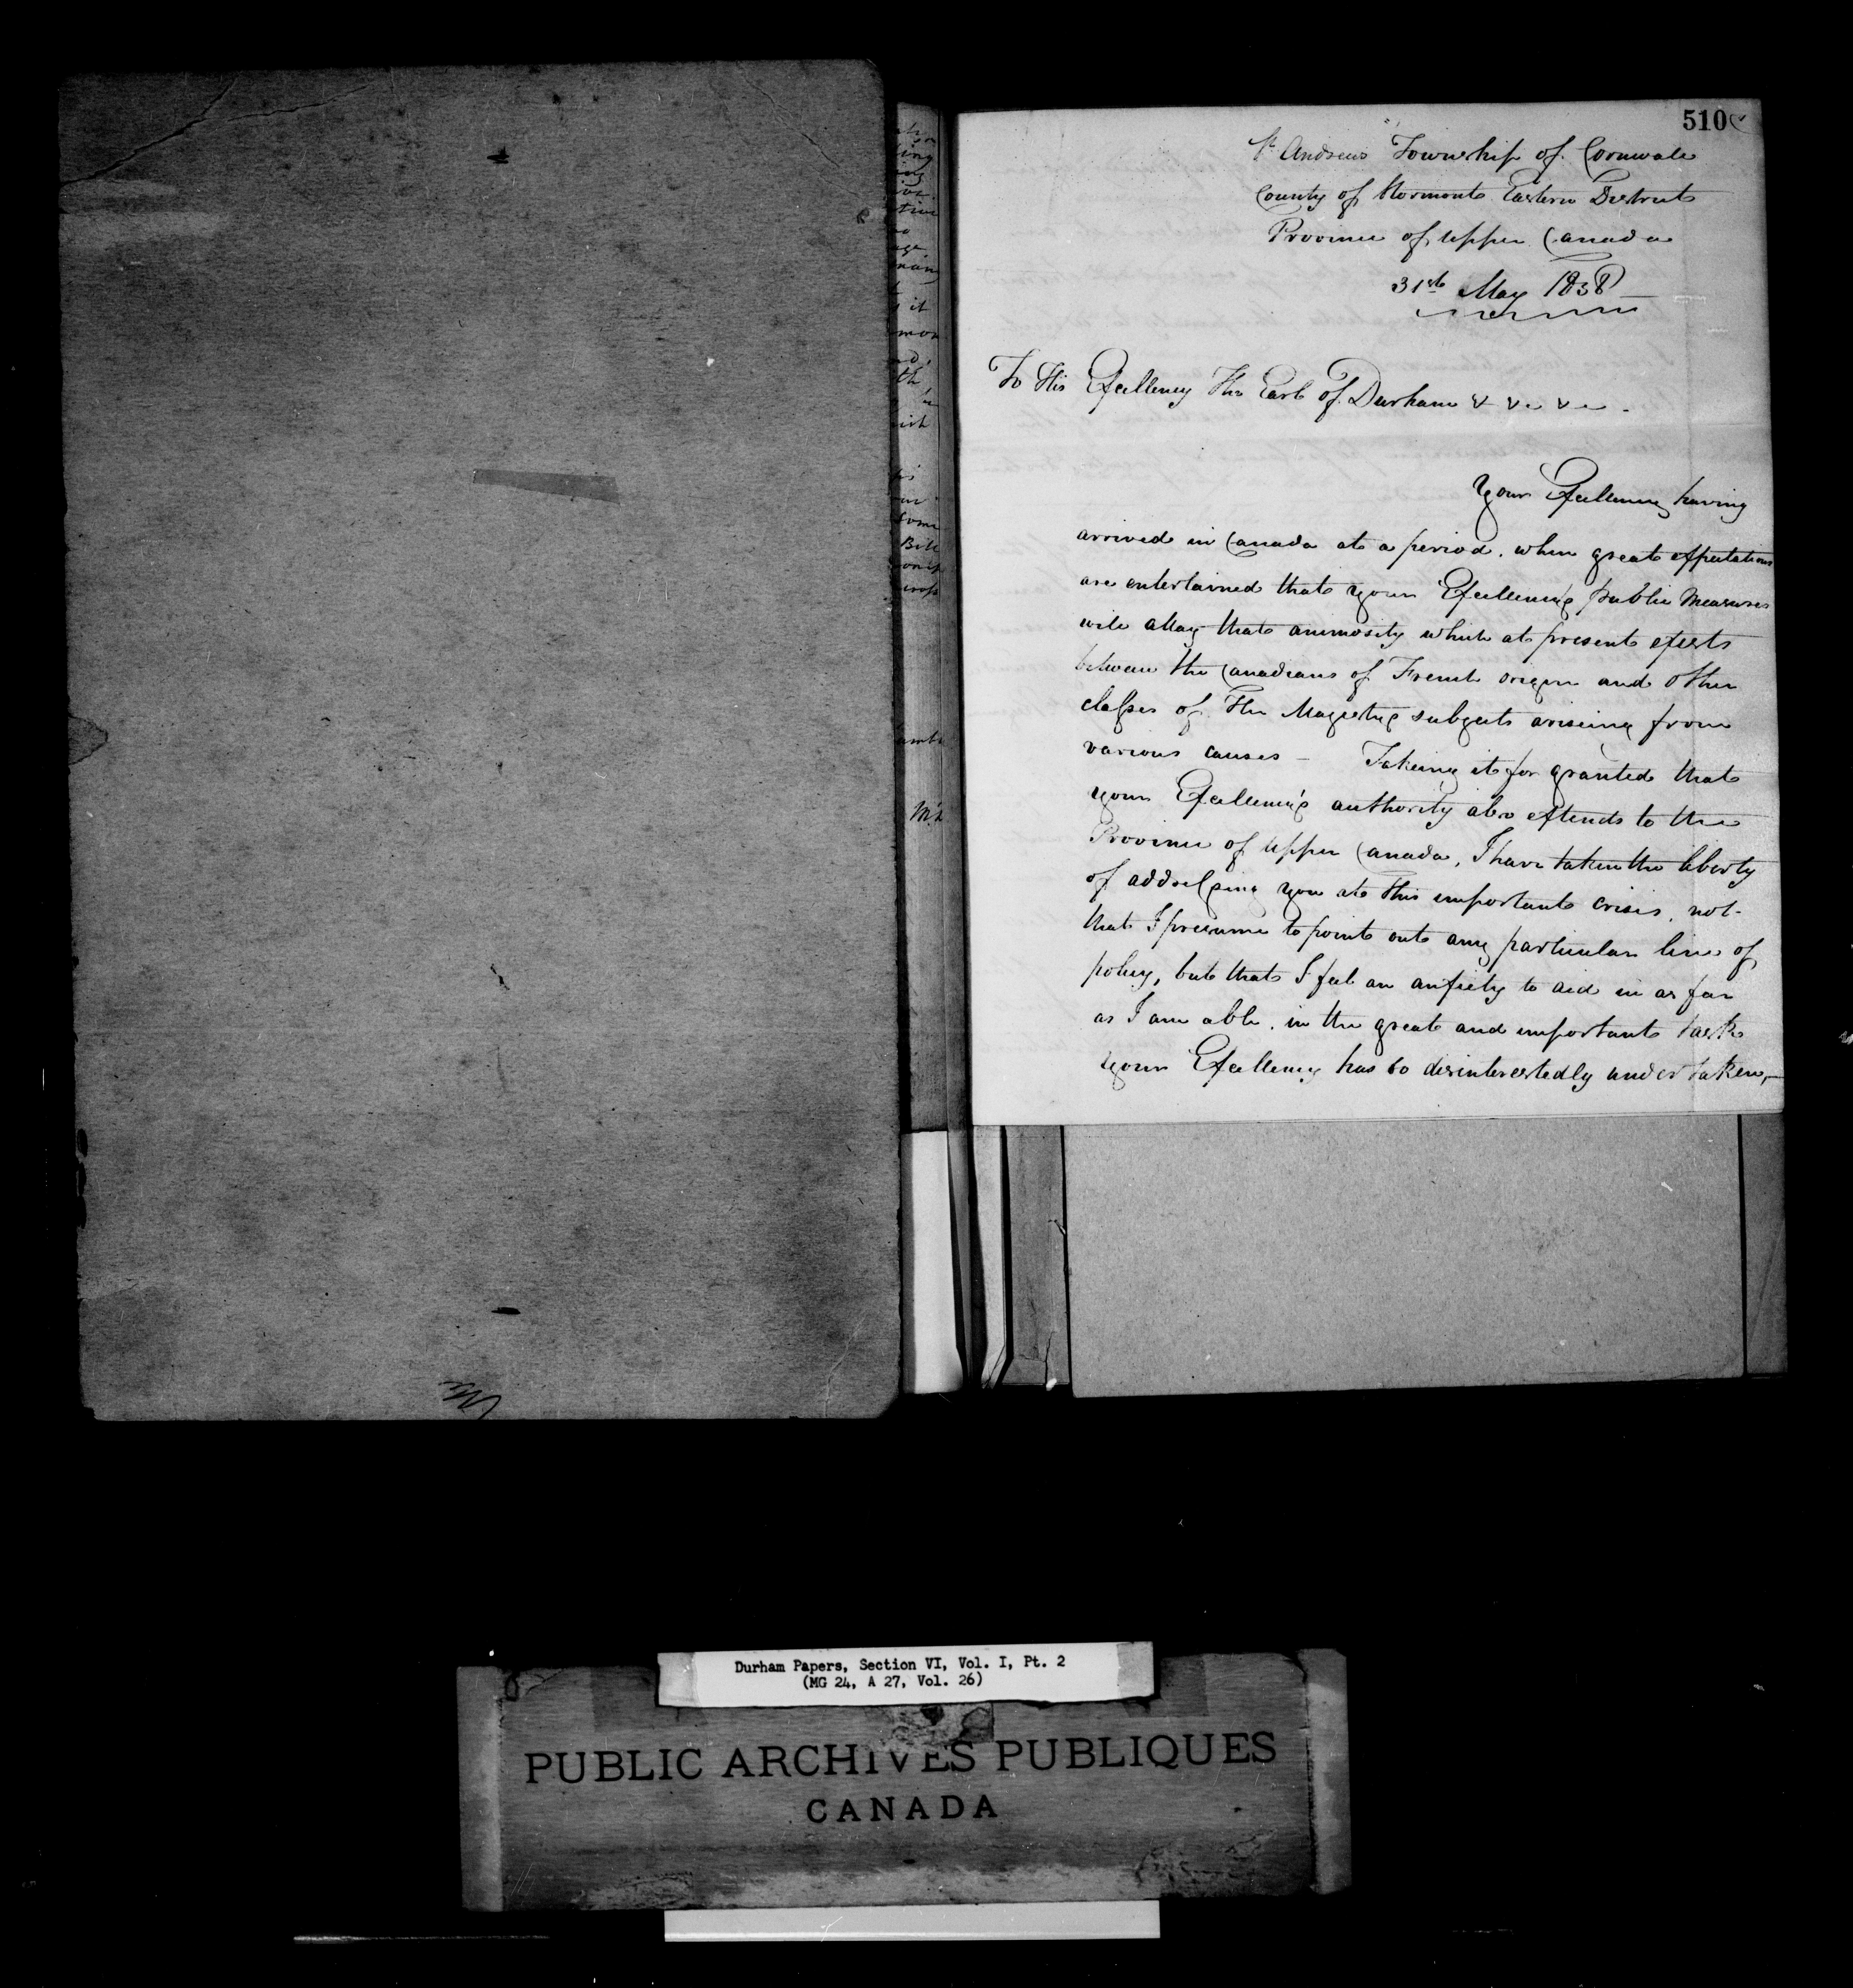 510
St Andrews Township of Cornwall
County of Stormont Eastern District
Province of Upper Canada
31st May 1838
To His Excellency The Earl of Durham & &c &c
Your Excellency having
arrived in Canada at a period, when great expectations
are entertained that your Excellency's public Measures
will allay that animosity which at present exists
between the Canadians of French origin and other
classes of Her Majesty's subjects arising from
various causes — Takeing it for granted that
your Excellency's authority also extends to the
Province of Upper Canada, I have taken the liberty
of addressing you at this important crisis, not
that I presume to point out any particular line of
policy, but that I feel an anxiety to aid in as far
as I am able, in the great and important task
your Excellency has so disinterestedly undertaken,
Durham Papers, Section VI, Vol. I, Pt. 2
(MG 24, A 27, Vol. 26)
PUBLIC ARCHIVES PUBLIQUES
CANADA